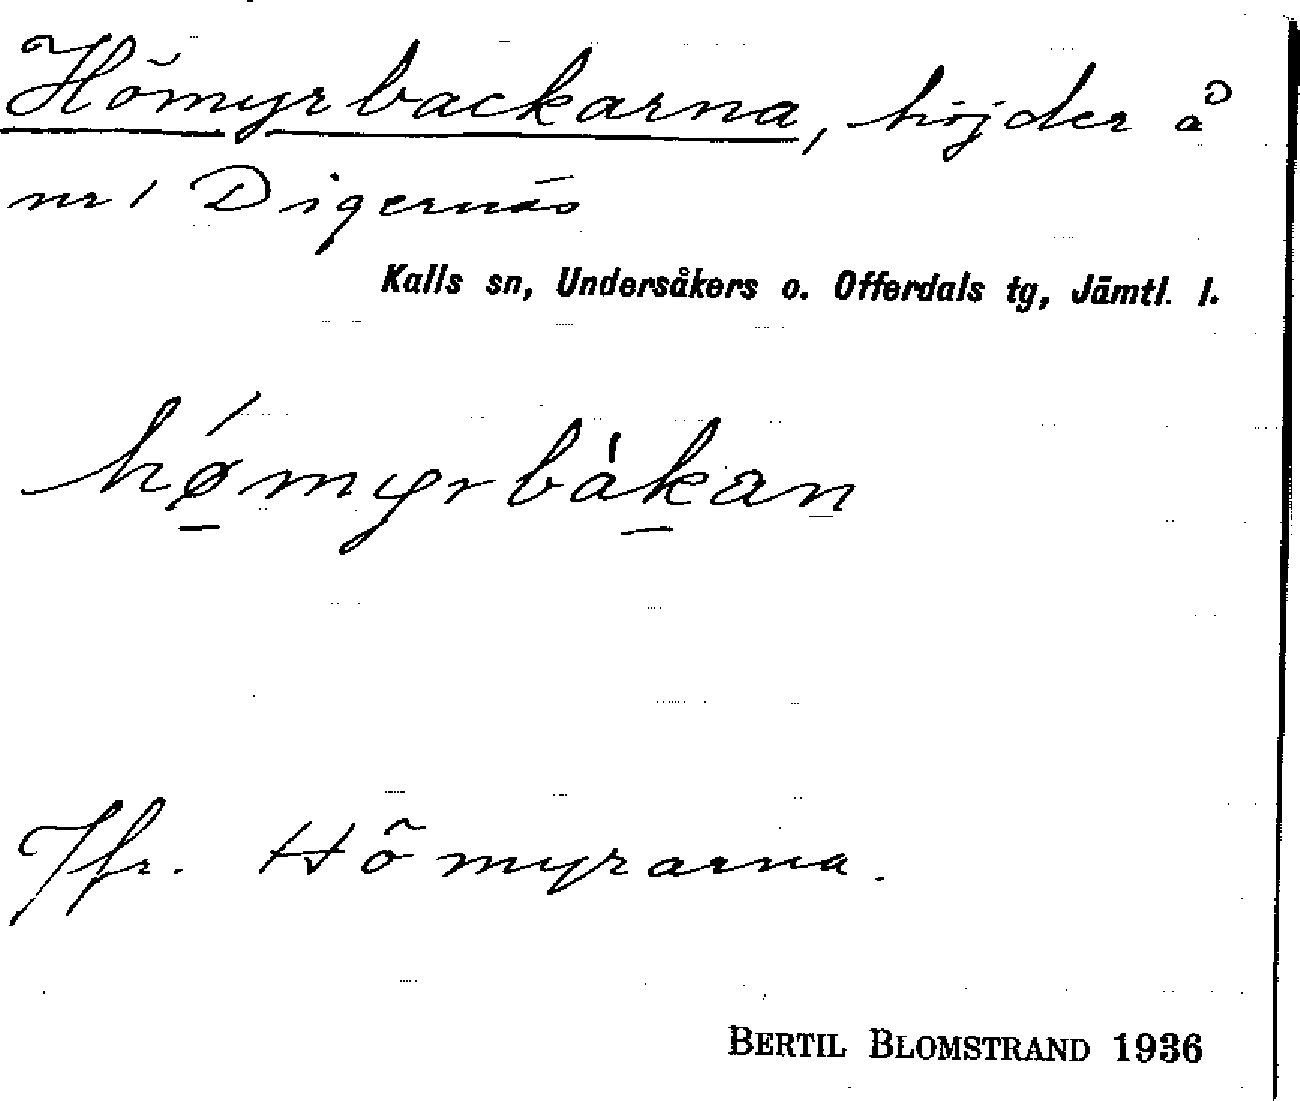 Hömyrbackarna, höjder å
nr 1 Digernäs
Kalls sn, Undersåkers o. Offerdals tg, Jämtl. l.
hǿ̱myrbák̠an̠
Jfr. Hömyrarna.
BERTIL BLOMSTRAND 1936